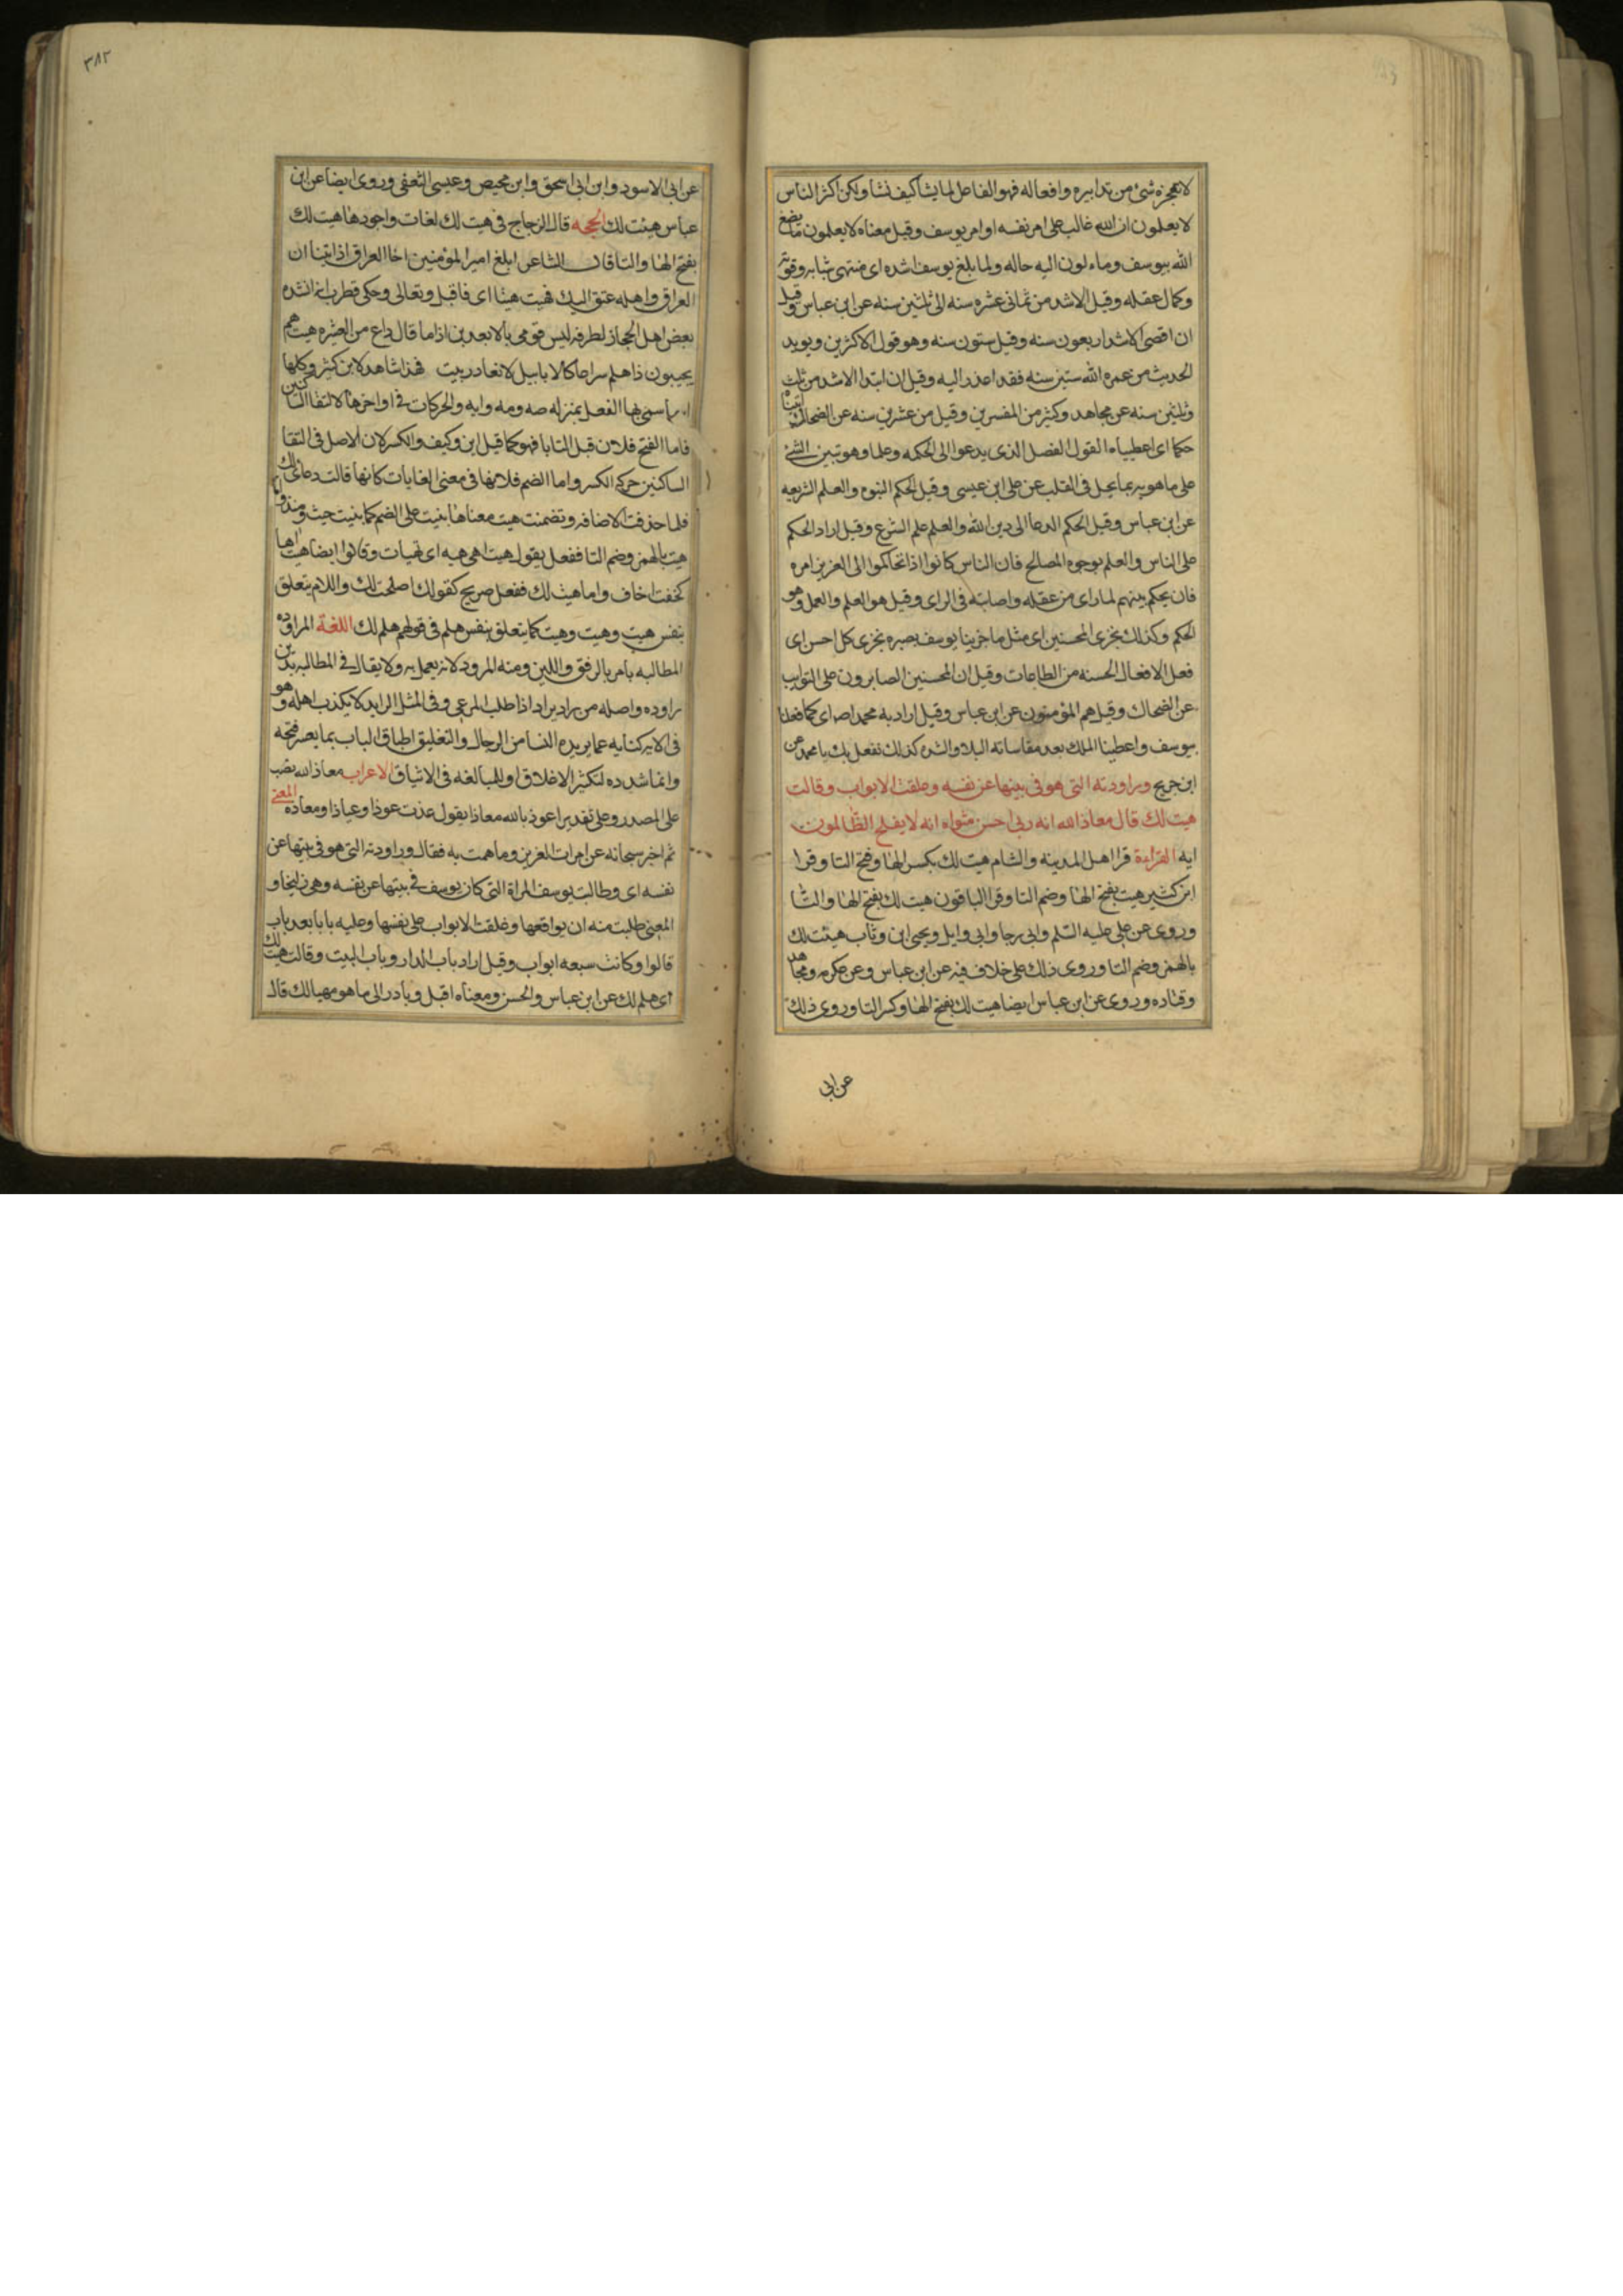 لا يعجزه شئ من تدابيره وافعاله فهو الفاعل لما يشا كيف نشا ولكن اكثر الناس
لا يعلمون ان الله غالب على امر نفسه او امر يوسف وقيل معناه لا يعلمون ما يضع
الله بيوسف وما لون اليه حاله ولما بلغ يوسف اشده اى منتهى شبابه وقوته
وكمال عقله وقيل الاشد من ثمانى عشره سنه الى ثلثين سنه عن ابن عباس وقيل
ان اقصى الاشد اربعون سنه وقيل ستون سنه وهو قول الاكثرين ويويد
الحديث من عمره الله ستين سنه فقد اعذر اليه وقيل ان ابتدا الاشد من ثلث
وثلثين سنه عن مجاهد وكثير من المفسرين وقيل من عشرين سنه عن الضحاك اتيناه
حكما اى اعطيناه القول الفصل الذى يدعوا الى الحكمه وعلما وهو تبين الشئ
على ما هو به بما يحل فى القلب عن على ابن عيسى وقيل الحكم النبوه والعلم الشريعه
عن ابن عباس وقيل الحكم الدعا الى دين الله والعلم علم الشرع وقيل اراد الحكم
على الناس والعلم بوجوه المصالح فان الناس كانوا اذا تحاكموا الى العزيز امره
فان يحكم بينهم لما راى من عقله واصابته فى الراى وقيل هو العلم والعمل وهو
الحكم وكذلك نجزى المحسنين اى مثل ما جزينا يوسف بصبره نجزى كل احسن اى
فعل الافعال الحسنه من الطاعات وقيل ان المحسنين الصابرون على النوايب
عن الضحاك وقيل هم المؤمنون عن ابن عباس وقيل اراد به محمدا ص اى كما فعلنا
بيوسف واعطينا الملك بعد مقاساته البلا والشده كذلك نفعل بك يا محمد عن
ابن جريح وراودته التى هو فى بيتها عن نفسه وغلقت الابواب وقالت
هيت لك قال معاذ الله انه ربى احسن مثواه انه لا يفلح الظالمون
ايه القراءة قرا اهل المدينه والشام هيت لك بكسر الها وفتح التا وقرا
ابن كثير هيت بفتح الها وضم التا وقرا الباقون هيت لك بفتح الها والتا
وروى عن على عليه السلم وابى رجا وابى وايل ويحيى ابن وثاب هيئت لك
بالهمز وضم التا وروى ذلك على خلاف فيه عن ابن عباس وعن عكرمه ومجاهد
وقتاده وروى عن ابن عباس ايضا هيت لك بفتح الها وكسر التا وروى ذلك
عن ابى
٣٨٢
عن ابى الاسود وابن ابى اسحق وابن محيص وعيسى الثقفى وروى ايضا عن ابن
عباس هيئت لك الحجه قال الزجاج فى هيت لك لغات واجودها هيت لك
بفتح الها والتا قال الشاعر ابلغ امير المؤمنين اخا العراق اذا اتينا ان
العراق واهله عتق اليك فهيت هيتا اى فاقبل وتعالى وحكى قطرب انه انشده
بعض اهل الحجاز لطرفه ليس قومى بالابعدين اذا ما قال داع من العشره هيت هم
يجيبون ذا هلم سراعا كالابابيل لا نغادر بيت فهذا شاهد لابن كثير وكلها
اسما سمى بها الفعل بمنزله صه ومه وايه والحركات فى اواخرها لالتقا الساكنين
فاما الفتح فلان قبل التا يا فهو كما قيل اين وكيف والكسر لان الاصل فى التقا
الساكنين حركه الكسر واما الضم فلانها فى معنى الغايات كانها قالت دعاى لك
فلما حذفت الاضافه وتضمنت هيت معناها بنيت على الضم كما بنيت حيث ومنذ واما
هيت بالهمز وضم التا ففعل يقول هيت اهى هيه اى تهيات وقالوا ايضا هيت اها
كخفت اخاف واما هيئت لك ففعل صريح كقولك اصلحت لك واللام يتعلق
بنفس هيت وهيت وهيت كما يتعلق بنفس هلم فى قولهم هلم لك اللغة المراوده
المطالبه بامر بالرفق واللين ومنه المرود لانه يعمل به ولا يقال فى المطالبه بدين
راوده واصله من راد يراد اذا طلب المرعى وفى المثل الرايد لا يكذب اهله وهو
فى الايه كنايه عما يريده النسا من الرجال والتغليق اطباق الباب بما يعسر فتحه
وانما شدده لتكثير الاغلاق او للمبالغه فى الايثاق الاعراب معاذ الله نصب
على المصدر وعلى تقدير اعوذ بالله معاذا يقول عذت عوذا وعياذا ومعاذه المعنى
ثم اخبر سبحانه عن امرات العزيز وما همت به فقال وراودته التى هو فى بيتها عن
نفسه اى وطالبت يوسف المراة التى كان يوسف فى بيتها عن نفسه وهى زليخا و
المعنى طلبت منه ان يواقعها وغلقت الابواب على نفسها وعليه بابا بعد باب
قالوا وكانت سبعه ابواب وقيل اراد باب الدار وباب البيت وقالت هيت لك
اى هلم لك عن ابن عباس والحسن ومعناه اقبل وبادر الى ما هو مهيا لك قال